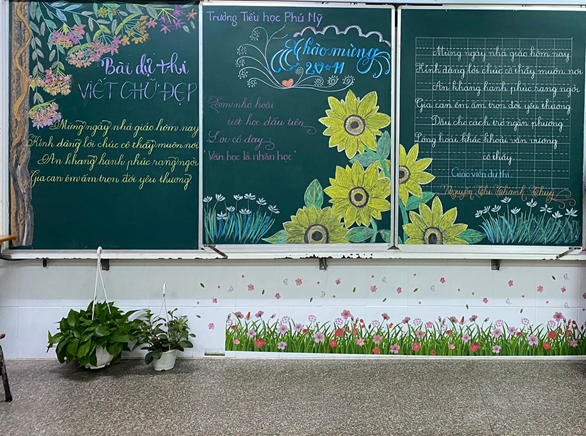 Bài dự thi
VIẾT CHỮ ĐẸP
Mừng ngày nhà giáo hôm nay
Kính dâng lời chúc cô thầy muôn nơi
An khang hạnh phúc rạng ngời
Gia can êm ấm trọn đời yêu thương
Trường Tiểu học Phú Mỹ
Chào mừng
20-11
Tiên học
Lời cô dạy
Văn học là nhân học"
Mừng ngày nhà giáo hôm nay
Kính dâng lời chúc cô thầy muôn nơi
An khang hạnh phúc rạng ngời
Gia can êm ấm trọn đời yêu thương
Dẫu cho cách trở ngàn phương
Lòng hoài khắc khoải vấn vương
cô thầy.
Giáo viên dự thi
Nguyễn Thị Thanh Thuý